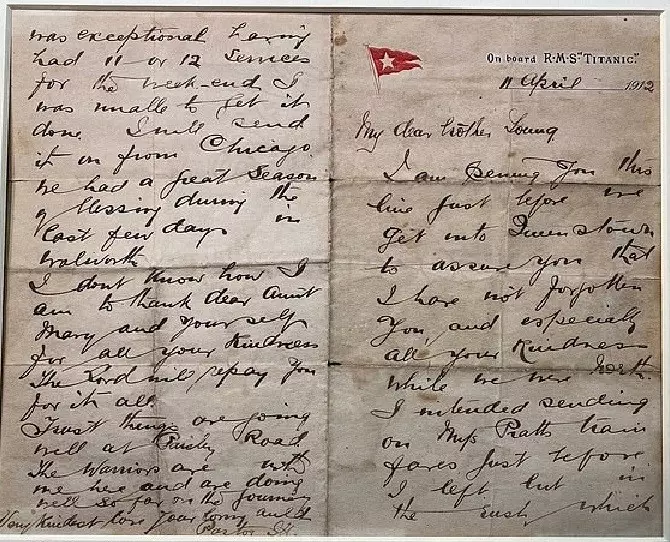 On board R·M·S "TITANIC."
11 April 1912
My dear brother Young
I am penning you this
line just before we
get into Queenstown
to assure you that
I have not forgotten
you, and especially
all your kindness
while we were North.
I intended sending
on Miss Pratts train
fares just before
I left but in
the rush which
was exceptional having
had 11 or 12 Services
for the week-end I
was unable to get it
done. I will send
it on from Chicago
We had a great Season
of blessing during the
last few days in
Walworth
I dont know how I
am to thank dear Aunt
Mary and yourself
for all your Kindness
The Lord will repay you
for it all.
Trust things are going
well at Paisley Road
The Warriors are with
me here and are doing
well so far on the journey
Very Kindest love your loving auld
Pastor J.H.